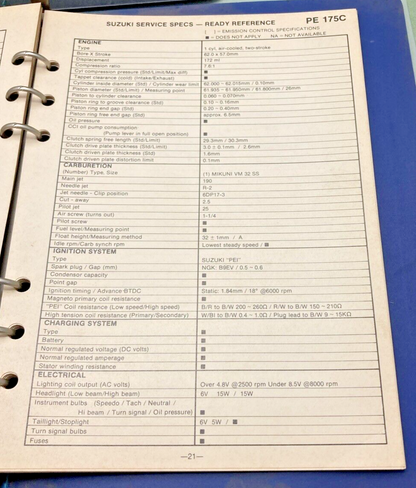 SUZUKI SERVICE SPECS — READY REFERENCE PE 175C
( ) = EMISSION CONTROL SPECIFICATIONS
■ = DOES NOT APPLY NA = NOT AVAILABLE
ENGINE
Type 1 cyl. air-cooled, two-stroke
Bore X Stroke 62.0 x 57.0mm
Displacement 172 ml
Compression ratio 7.6:1
Cyl compression pressure (Std/Limit/Max diff) ■
Tappet clearance (cold) (Intake/Exhaust) ■
Cylinder inside diameter (Std) / Cylinder wear limit 62.000 - 62.015mm / 0.10mm
Piston diameter (Std/Limit) / Measuring point
Piston to cylinder clearance 0.060 - 0.070mm
Piston ring to groove clearance (Std)
Piston ring end gap (Std) 0.20 - 0.40mm
Piston ring free end gap (Std) approx. 6.5mm
Oil pressure ■
CCI oil pump consumption
(Pump lever or full open position) ■
Clutch spring free length (Std/Limit)
Clutch drive plate thickness (Std/Limit)
Clutch driven plate thickness (Std) 1.6mm
Clutch driven plate distortion limit 0.1mm
CARBURETION
(Number) Type, Size (1) MIKUNI VM 32 SS
Main jet 190
Needle jet R-2
Jet needle - Clip position 6DP17-3
Cut - away 2.5
Pilot jet 25
Air screw (turns out) 1-1/4
Pilot screw ■
Fuel level/Measuring point ■
Float height/Measuring method 32 ± 1mm / A
Idle rpm/Carb synch rpm Lowest steady speed / ■
IGNITION SYSTEM
Type SUZUKI "PEI"
Spark plug / Gap (mm) NGK: B9EV / 0.5 - 0.6
Condensor capacity ■
Point gap ■
Ignition timing / Advance-BTDC Static: 1.94mm / 18° @6000 rpm
Magneto primary coil resistance ■
"PEI" Coil resistance (Low speed/High speed) B/R to B/W 200 - 260Ω / R/W to B/W 150 - 210Ω
High tension coil resistance (Primary/Secondary) W/Bl to B/W 0.4 - 1.0Ω / Plug lead to B/W 9 - 15KΩ
CHARGING SYSTEM
Type ■
Battery ■
Normal regulated voltage (DC volts) ■
Normal regulated amperage ■
Stator winding resistance ■
ELECTRICAL
Lighting coil output (AC volts) Over 4.8V @2500 rpm Under 8.5V @8000 rpm
Headlight (Low beam/High beam) 6V 15W / 15W
Instrument bulbs (Speedo / Tach / Neutral /
Hi beam / Turn signal / Oil pressure) ■
Taillight/Stoplight 6V 5W / ■
Turn signal bulbs ■
Fuses ■
—21—